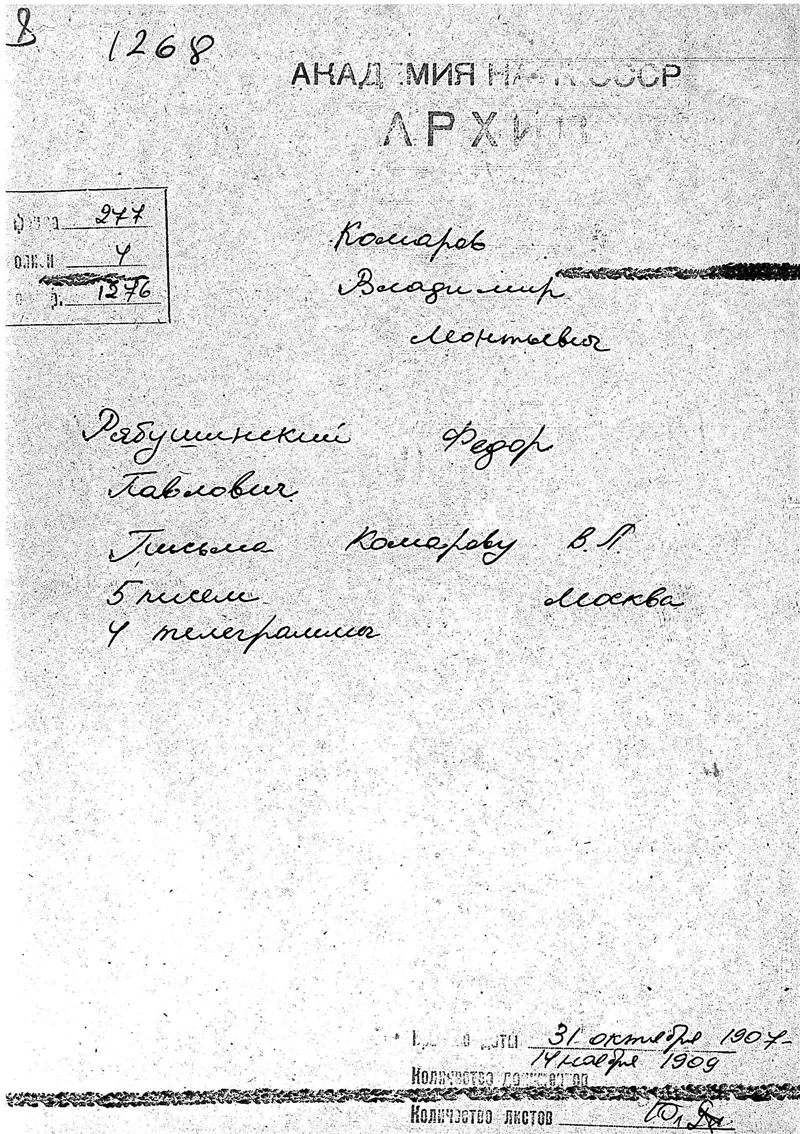 8 1268
АКАДЕМИЯ НАУК СССР
АРХИВ
фонд 277
опись 4
ед. хр. 1276
Комаров
Владимир
Леонтьевич
Рябушинский Федор
Павлович
Письма Комарову В.Л.
5 писем Москва
4 телеграммы
Крайние даты 31 октября 1907-
14 ноября 1909
Количество документов
Количество листов